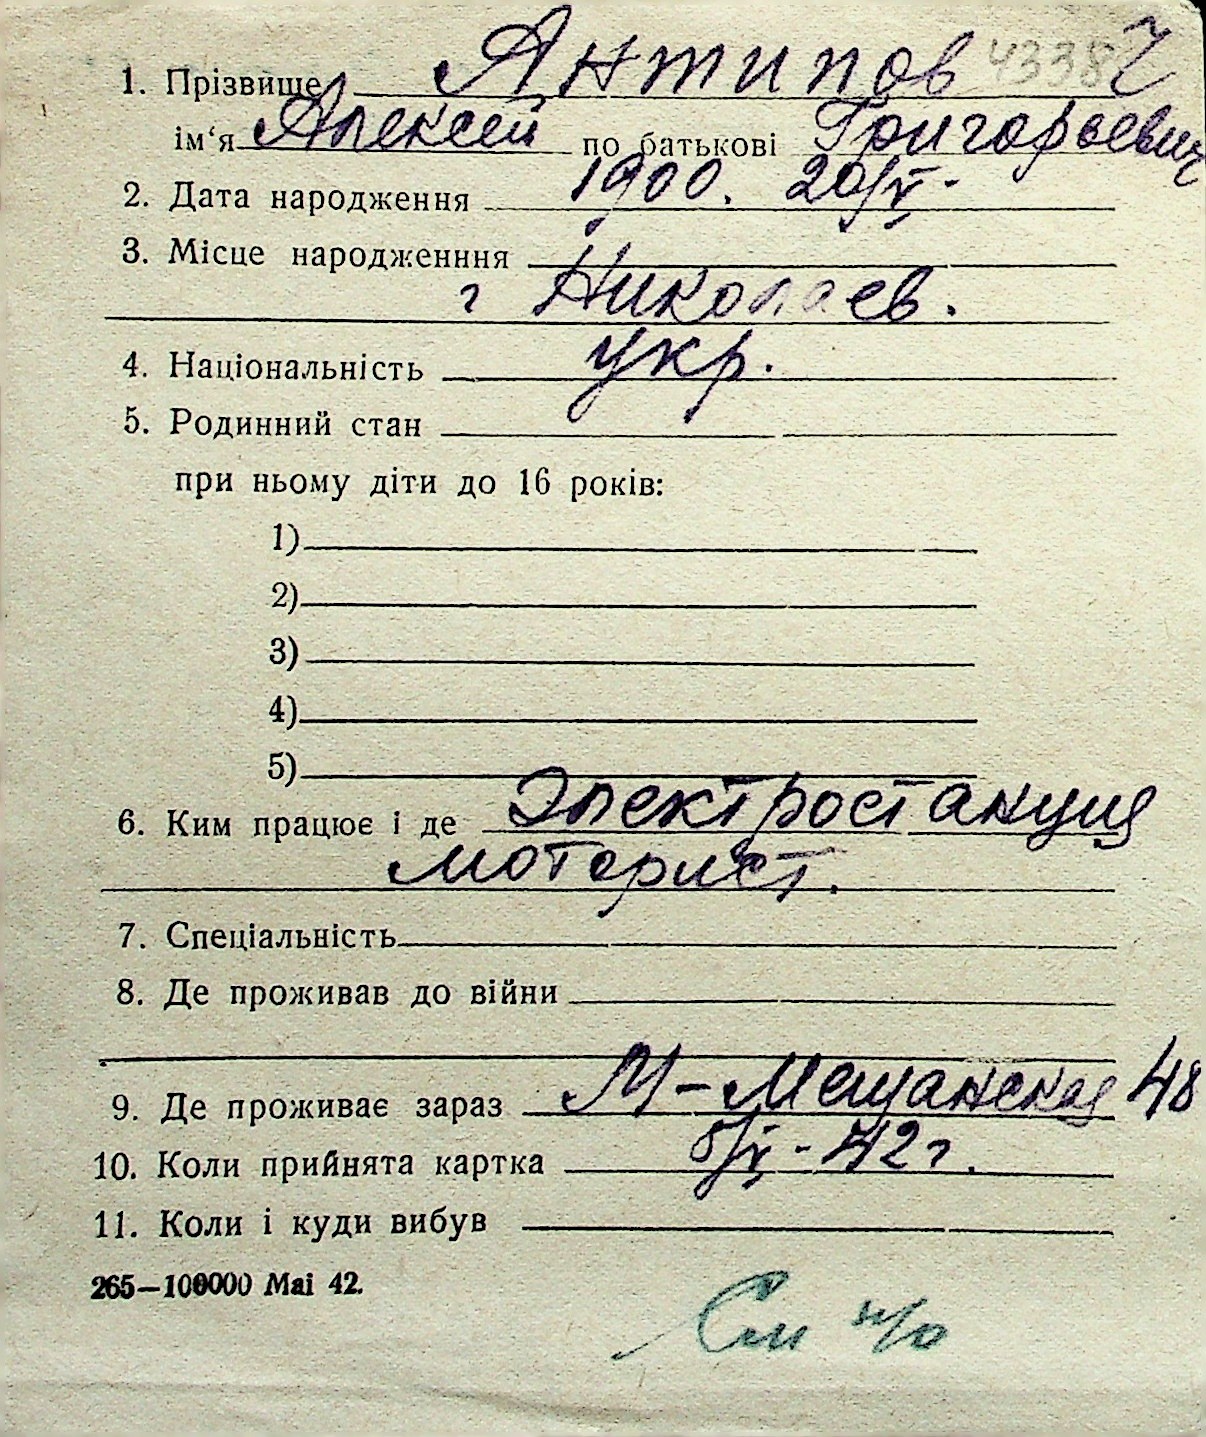 1. Прізвище Антипов 4338 Ч
ім'я Алексей по батькові Григорьевич
2. Дата народження 1900. 20/V.
3. Місце народженння
г Николаев.
4. Національність укр.
5. Родинний стан
при ньому діти до 16 років:
1)
2)
3)
4)
5)
6. Ким працює і де Электростанция
моторист.
7. Спеціальність
8. Де проживав до війни
9. Де проживає зараз М-Мещанская 48
10. Коли прийнята картка 5/X-42 г.
11. Коли і куди вибув
265—100000 Mai 42.
См н/о